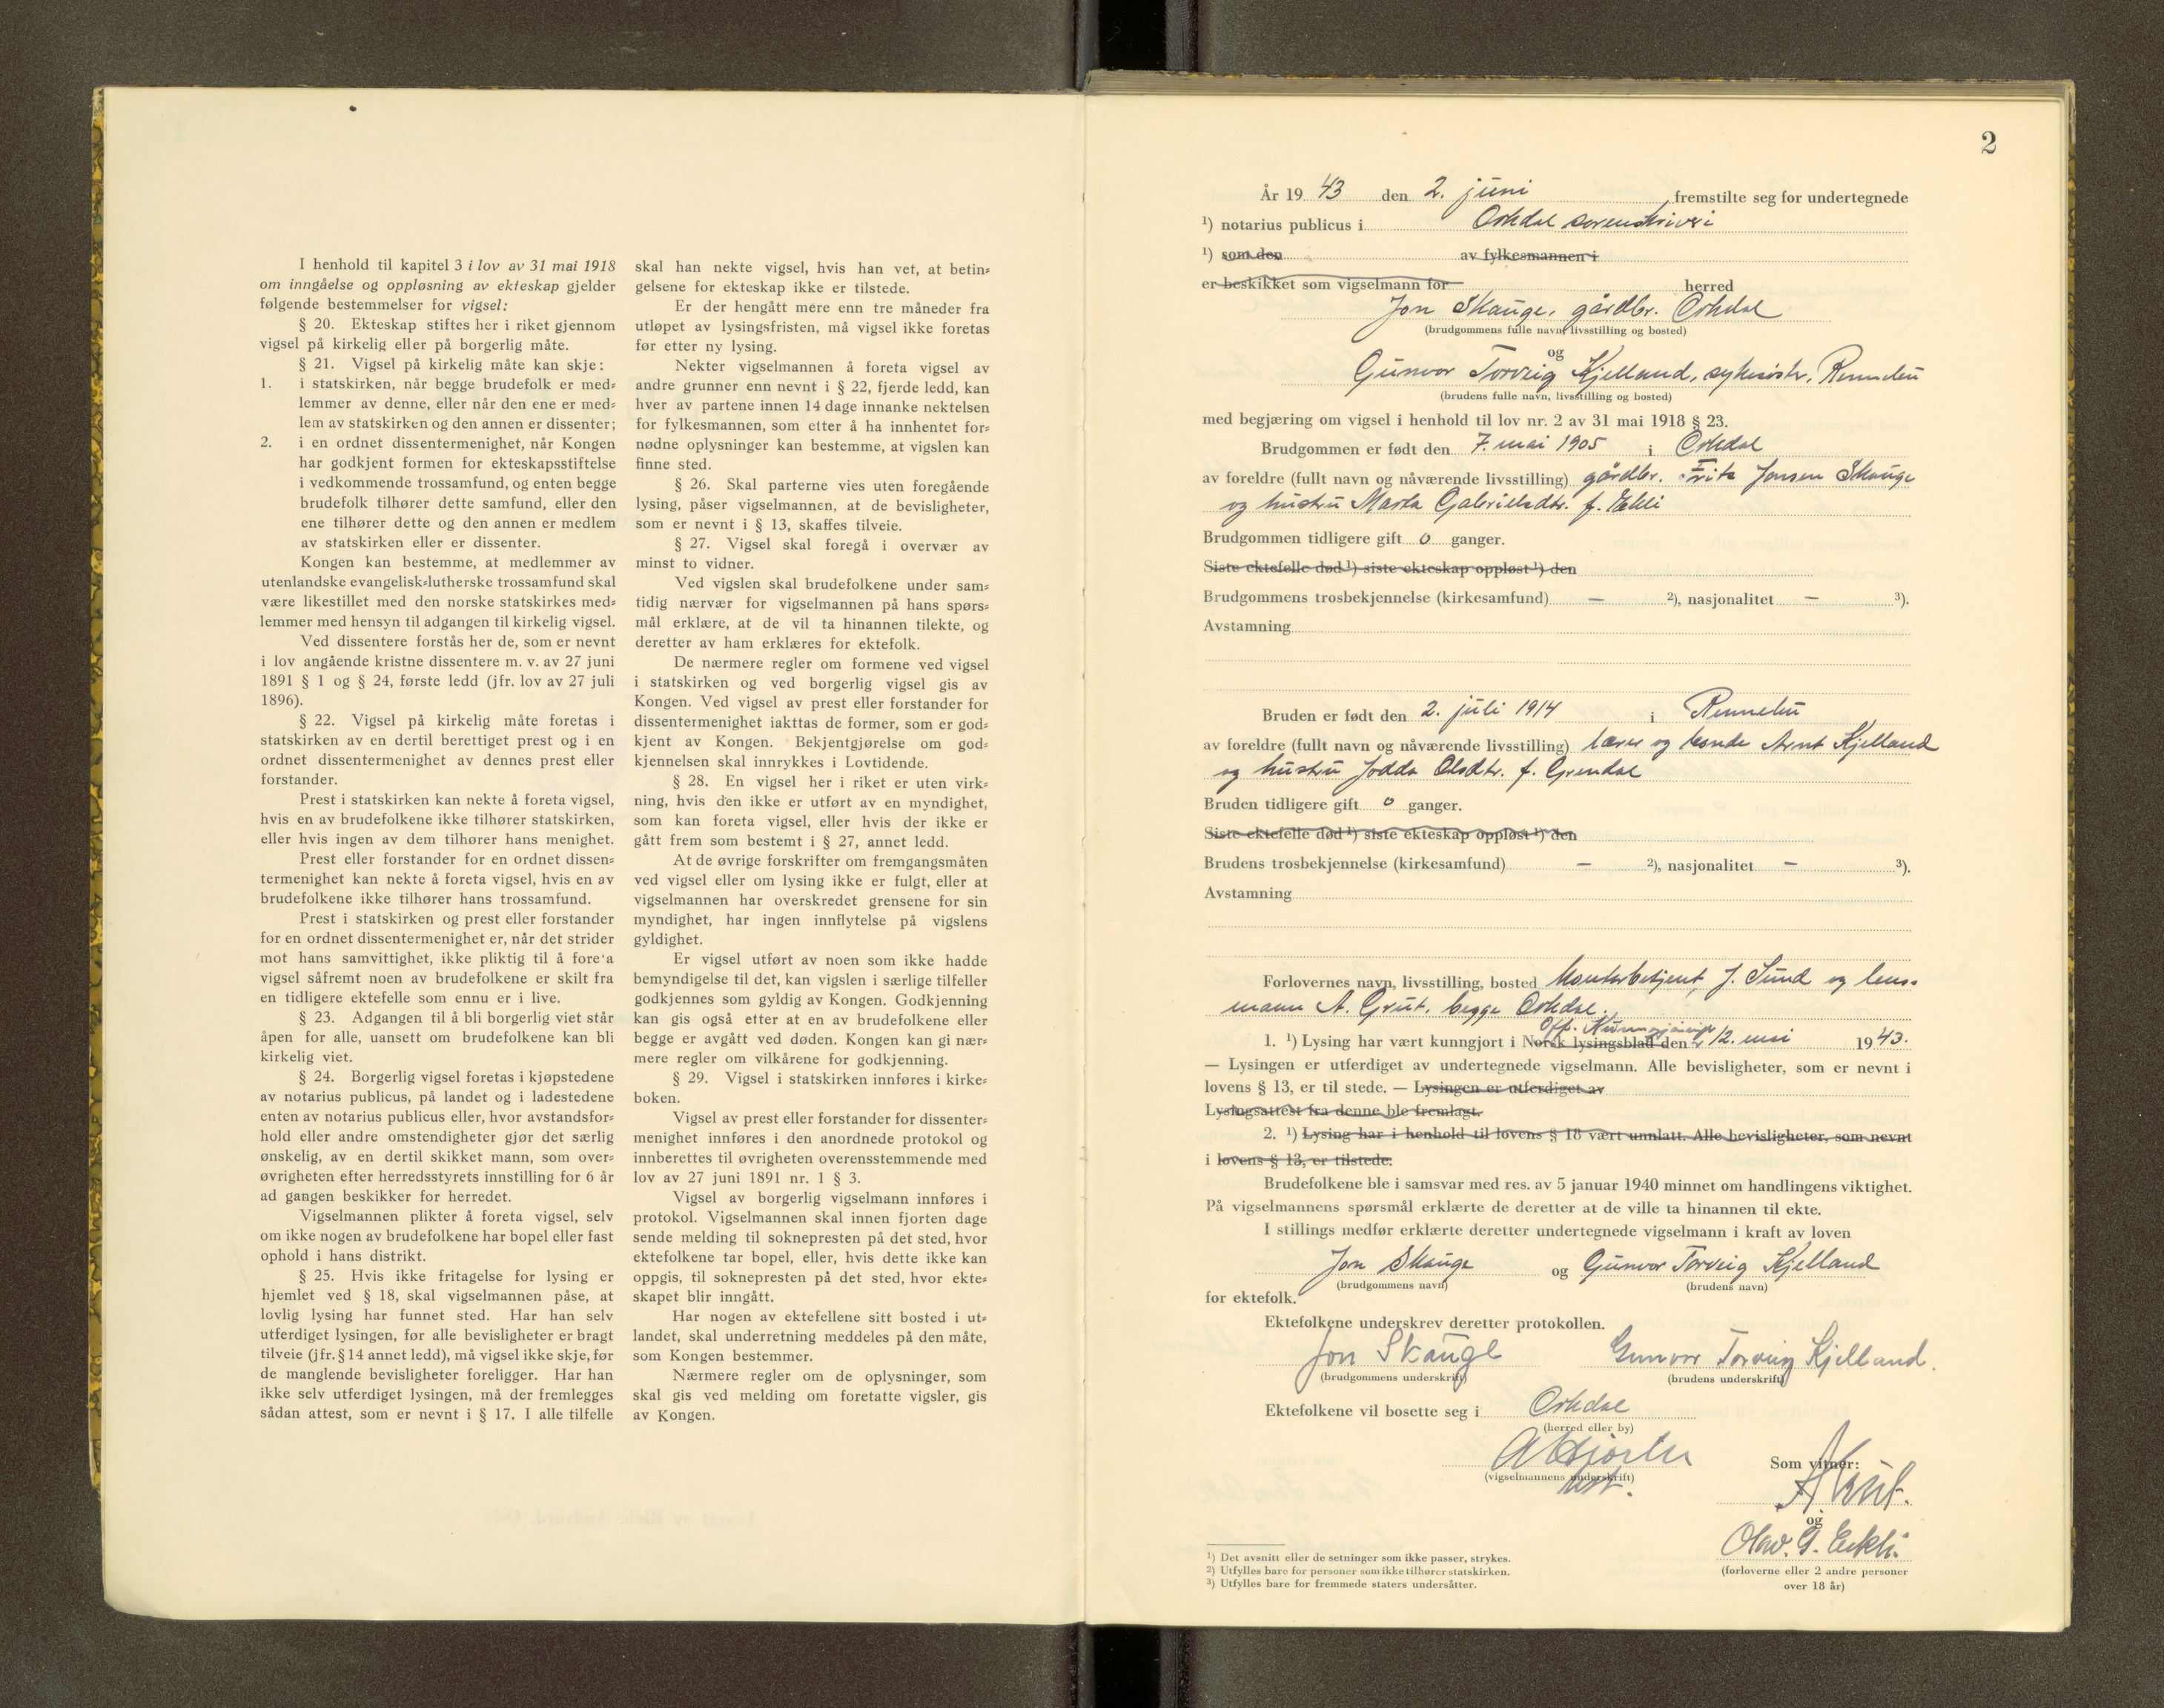 I henhold til kapitel 3 i lov av 31 mai 1918
om inngåelse og oppløsning av ekteskap gjelder
følgende bestemmelser for vigsel:
§ 20. Ekteskap stiftes her i riket gjennom
vigsel på kirkelig eller på borgerlig måte.
§ 21. Vigsel på kirkelig måte kan skje:
1. i statskirken, når begge brudefolk er med=
lemmer av denne, eller når den ene er med=
lem av statskirken og den annen er dissenter;
2. i en ordnet dissentermenighet, når Kongen
har godkjent formen for ekteskapsstiftelse
i vedkommende trossamfund, og enten begge
brudefolk tilhører dette samfund, eller den
ene tilhører dette og den annen er medlem
av statskirken eller er dissenter.
Kongen kan bestemme, at medlemmer av
utenlandske evangelisk=lutherske trossamfund skal
være likestillet med den norske statskirkes med=
lemmer med hensyn til adgangen til kirkelig vigsel.
Ved dissentere forstås her de, som er nevnt
i lov angående kristne dissentere m. v. av 27 juni
1891 § 1 og § 24, første ledd (jfr. lov av 27 juli
1896).
§ 22. Vigsel på kirkelig måte foretas i
statskirken av en dertil berettiget prest og i en
ordnet dissentermenighet av dennes prest eller
forstander.
Prest i statskirken kan nekte å foreta vigsel,
hvis en av brudefolkene ikke tilhører statskirken,
eller hvis ingen av dem tilhører hans menighet.
Prest eller forstander for en ordnet dissen=
termenighet kan nekte å foreta vigsel, hvis en av
brudefolkene ikke tilhører hans trossamfund.
Prest i statskirken og prest eller forstander
for en ordnet dissentermenighet er, når det strider
mot hans samvittighet, ikke pliktig til å fore'a
vigsel såfremt noen av brudefolkene er skilt fra
en tidligere ektefelle som ennu er i live.
§ 23. Adgangen til å bli borgerlig viet står
åpen for alle, uansett om brudefolkene kan bli
kirkelig viet.
§ 24. Borgerlig vigsel foretas i kjøpstedene
av notarius publicus, på landet og i ladestedene
enten av notarius publicus eller, hvor avstandsfor=
hold eller andre omstendigheter gjør det særlig
ønskelig, av en dertil skikket mann, som over=
øvrigheten efter herredsstyrets innstilling for 6 år
ad gangen beskikker for herredet.
Vigselmannen plikter å foreta vigsel, selv
om ikke nogen av brudefolkene har bopel eller fast
ophold i hans distrikt.
§ 25. Hvis ikke fritagelse for lysing er
hjemlet ved § 18, skal vigselmannen påse, at
lovlig lysing har funnet sted. Har han selv
utferdiget lysingen, før alle bevisligheter er bragt
tilveie (jfr. § 14 annet ledd), må vigsel ikke skje, før
de manglende bevisligheter foreligger. Har han
ikke selv utferdiget lysingen, må der fremlegges
sådan attest, som er nevnt i § 17. I alle tilfelle
skal han nekte vigsel, hvis han vet, at betin=
gelsene for ekteskap ikke er tilstede.
Er der hengått mere enn tre måneder fra
utløpet av lysingsfristen, må vigsel ikke foretas
før etter ny lysing.
Nekter vigselmannen å foreta vigsel av
andre grunner enn nevnt i § 22, fjerde ledd, kan
hver av partene innen 14 dage innanke nektelsen
for fylkesmannen, som etter å ha innhentet for=
nødne oplysninger kan bestemme, at vigslen kan
finne sted.
§ 26. Skal parterne vies uten foregående
lysing, påser vigselmannen, at de bevisligheter,
som er nevnt i § 13, skaffes tilveie.
§ 27. Vigsel skal foregå i overvær av
minst to vidner.
Ved vigslen skal brudefolkene under sam=
tidig nærvær for vigselmannen på hans spørs=
mål erklære, at de vil ta hinannen tilekte, og
deretter av ham erklæres for ektefolk.
De nærmere regler om formene ved vigsel
i statskirken og ved borgerlig vigsel gis av
Kongen. Ved vigsel av prest eller forstander for
dissentermenighet iakttas de former, som er god=
kjent av Kongen. Bekjentgjørelse om god=
kjennelsen skal innrykkes i Lovtidende.
§ 28. En vigsel her i riket er uten virk=
ning, hvis den ikke er utført av en myndighet,
som kan foreta vigsel, eller hvis der ikke er
gått frem som bestemt i § 27, annet ledd.
At de øvrige forskrifter om fremgangsmåten
ved vigsel eller om lysing ikke er fulgt, eller at
vigselmannen har overskredet grensene for sin
myndighet, har ingen innflytelse på vigslens
gyldighet.
Er vigsel utført av noen som ikke hadde
bemyndigelse til det, kan vigslen i særlige tilfeller
godkjennes som gyldig av Kongen. Godkjenning
kan gis også etter at en av brudefolkene eller
begge er avgått ved døden. Kongen kan gi nær=
mere regler om vilkårene for godkjenning.
§ 29. Vigsel i statskirken innføres i kirke=
boken.
Vigsel av prest eller forstander for dissenter=
menighet innføres i den anordnede protokol og
innberettes til øvrigheten overensstemmende med
lov av 27 juni 1891 nr. 1 § 3.
Vigsel av borgerlig vigselmann innføres i
protokol. Vigselmannen skal innen fjorten dage
sende melding til soknepresten på det sted, hvor
ektefolkene tar bopel, eller, hvis dette ikke kan
oppgis, til soknepresten på det sted, hvor ekte=
skapet blir inngått.
Har nogen av ektefellene sitt bosted i ut=
landet, skal underretning meddeles på den måte,
som Kongen bestemmer.
Nærmere regler om de oplysninger, som
skal gis ved melding om foretatte vigsler, gis
av Kongen.
2
År 1943 den 2. juni fremstilte seg for undertegnede
1) notarius publicus i Orkdal sorenskriveri
1) som den av fylkesmannen i
er beskikket som vigselmann for herred
Jon Skauge, gårdbr. Orkdal
(brudgommens fulle navn, livsstilling og bosted)
og
Gunvor Torveig Kjelland, sykesøstr, Rennebu
(brudens fulle navn, livsstilling og bosted)
med begjæring om vigsel i henhold til lov nr. 2 av 31 mai 1918 § 23.
Brudgommen er født den 7. mai 1905 i Orkdal
av foreldre (fullt navn og nåværende livsstilling) gårdbr. Fritz Jonsen Skauge
og hustru Marta Gabrielsdtr. f. Ekli
Brudgommen tidligere gift 0 ganger.
Siste ektefelle død 1) siste ekteskap oppløst 1) den
Brudgommens trosbekjennelse (kirkesamfund) — 2), nasjonalitet — 3).
Avstamning
Bruden er født den 2. juli 1914 i Rennebu
av foreldre (fullt navn og nåværende livsstilling) lærer og bonde Arnt Kjelland
og hustru Jodda Olsdtr. f. Grendal
Bruden tidligere gift 0 ganger.
Siste ektefelle død 1) siste ekteskap oppløst 1) den
Brudens trosbekjennelse (kirkesamfund) — 2), nasjonalitet — 3).
Avstamning
Forlovernes navn, livsstilling, bosted kontorbetjent J. Sund og lens-
mann A. Grut, begge Orkdal.
Off. Kunngjøringer
1. 1) Lysing har vært kunngjort i Norsk lysingsblad den 12. mai 1943.
— Lysingen er utferdiget av undertegnede vigselmann. Alle bevisligheter, som er nevnt i
lovens § 13, er til stede. — Lysingen er utferdiget av
Lysingsattest fra denne ble fremlagt.
2. 1) Lysing har i henhold til lovens § 18 vært unnlatt. Alle bevisligheter, som nevnt
i lovens § 13, er tilstede.
Brudefolkene ble i samsvar med res. av 5 januar 1940 minnet om handlingens viktighet.
På vigselmannens spørsmål erklærte de deretter at de ville ta hinannen til ekte.
I stillings medfør erklærte deretter undertegnede vigselmann i kraft av loven
Jon Skauge og Gunvor Torveig Kjelland
(brudgommens navn) (brudens navn)
for ektefolk.
Ektefolkene underskrev deretter protokollen.
Jon Skauge Gunvor Torveig Kjelland.
(brudgommens underskrift) (brudens underskrift)
Ektefolkene vil bosette seg i Orkdal
(herred eller by)
Som vitner:
(vigselmannens underskrift)
A Grut.
og
Olav. G. Eekli.
(forloverne eller 2 andre personer
over 18 år)
1) Det avsnitt eller de setninger som ikke passer, strykes.
2) Utfylles bare for personer som ikke tilhører statskirken.
3) Utfylles bare for fremmede staters undersåtter.